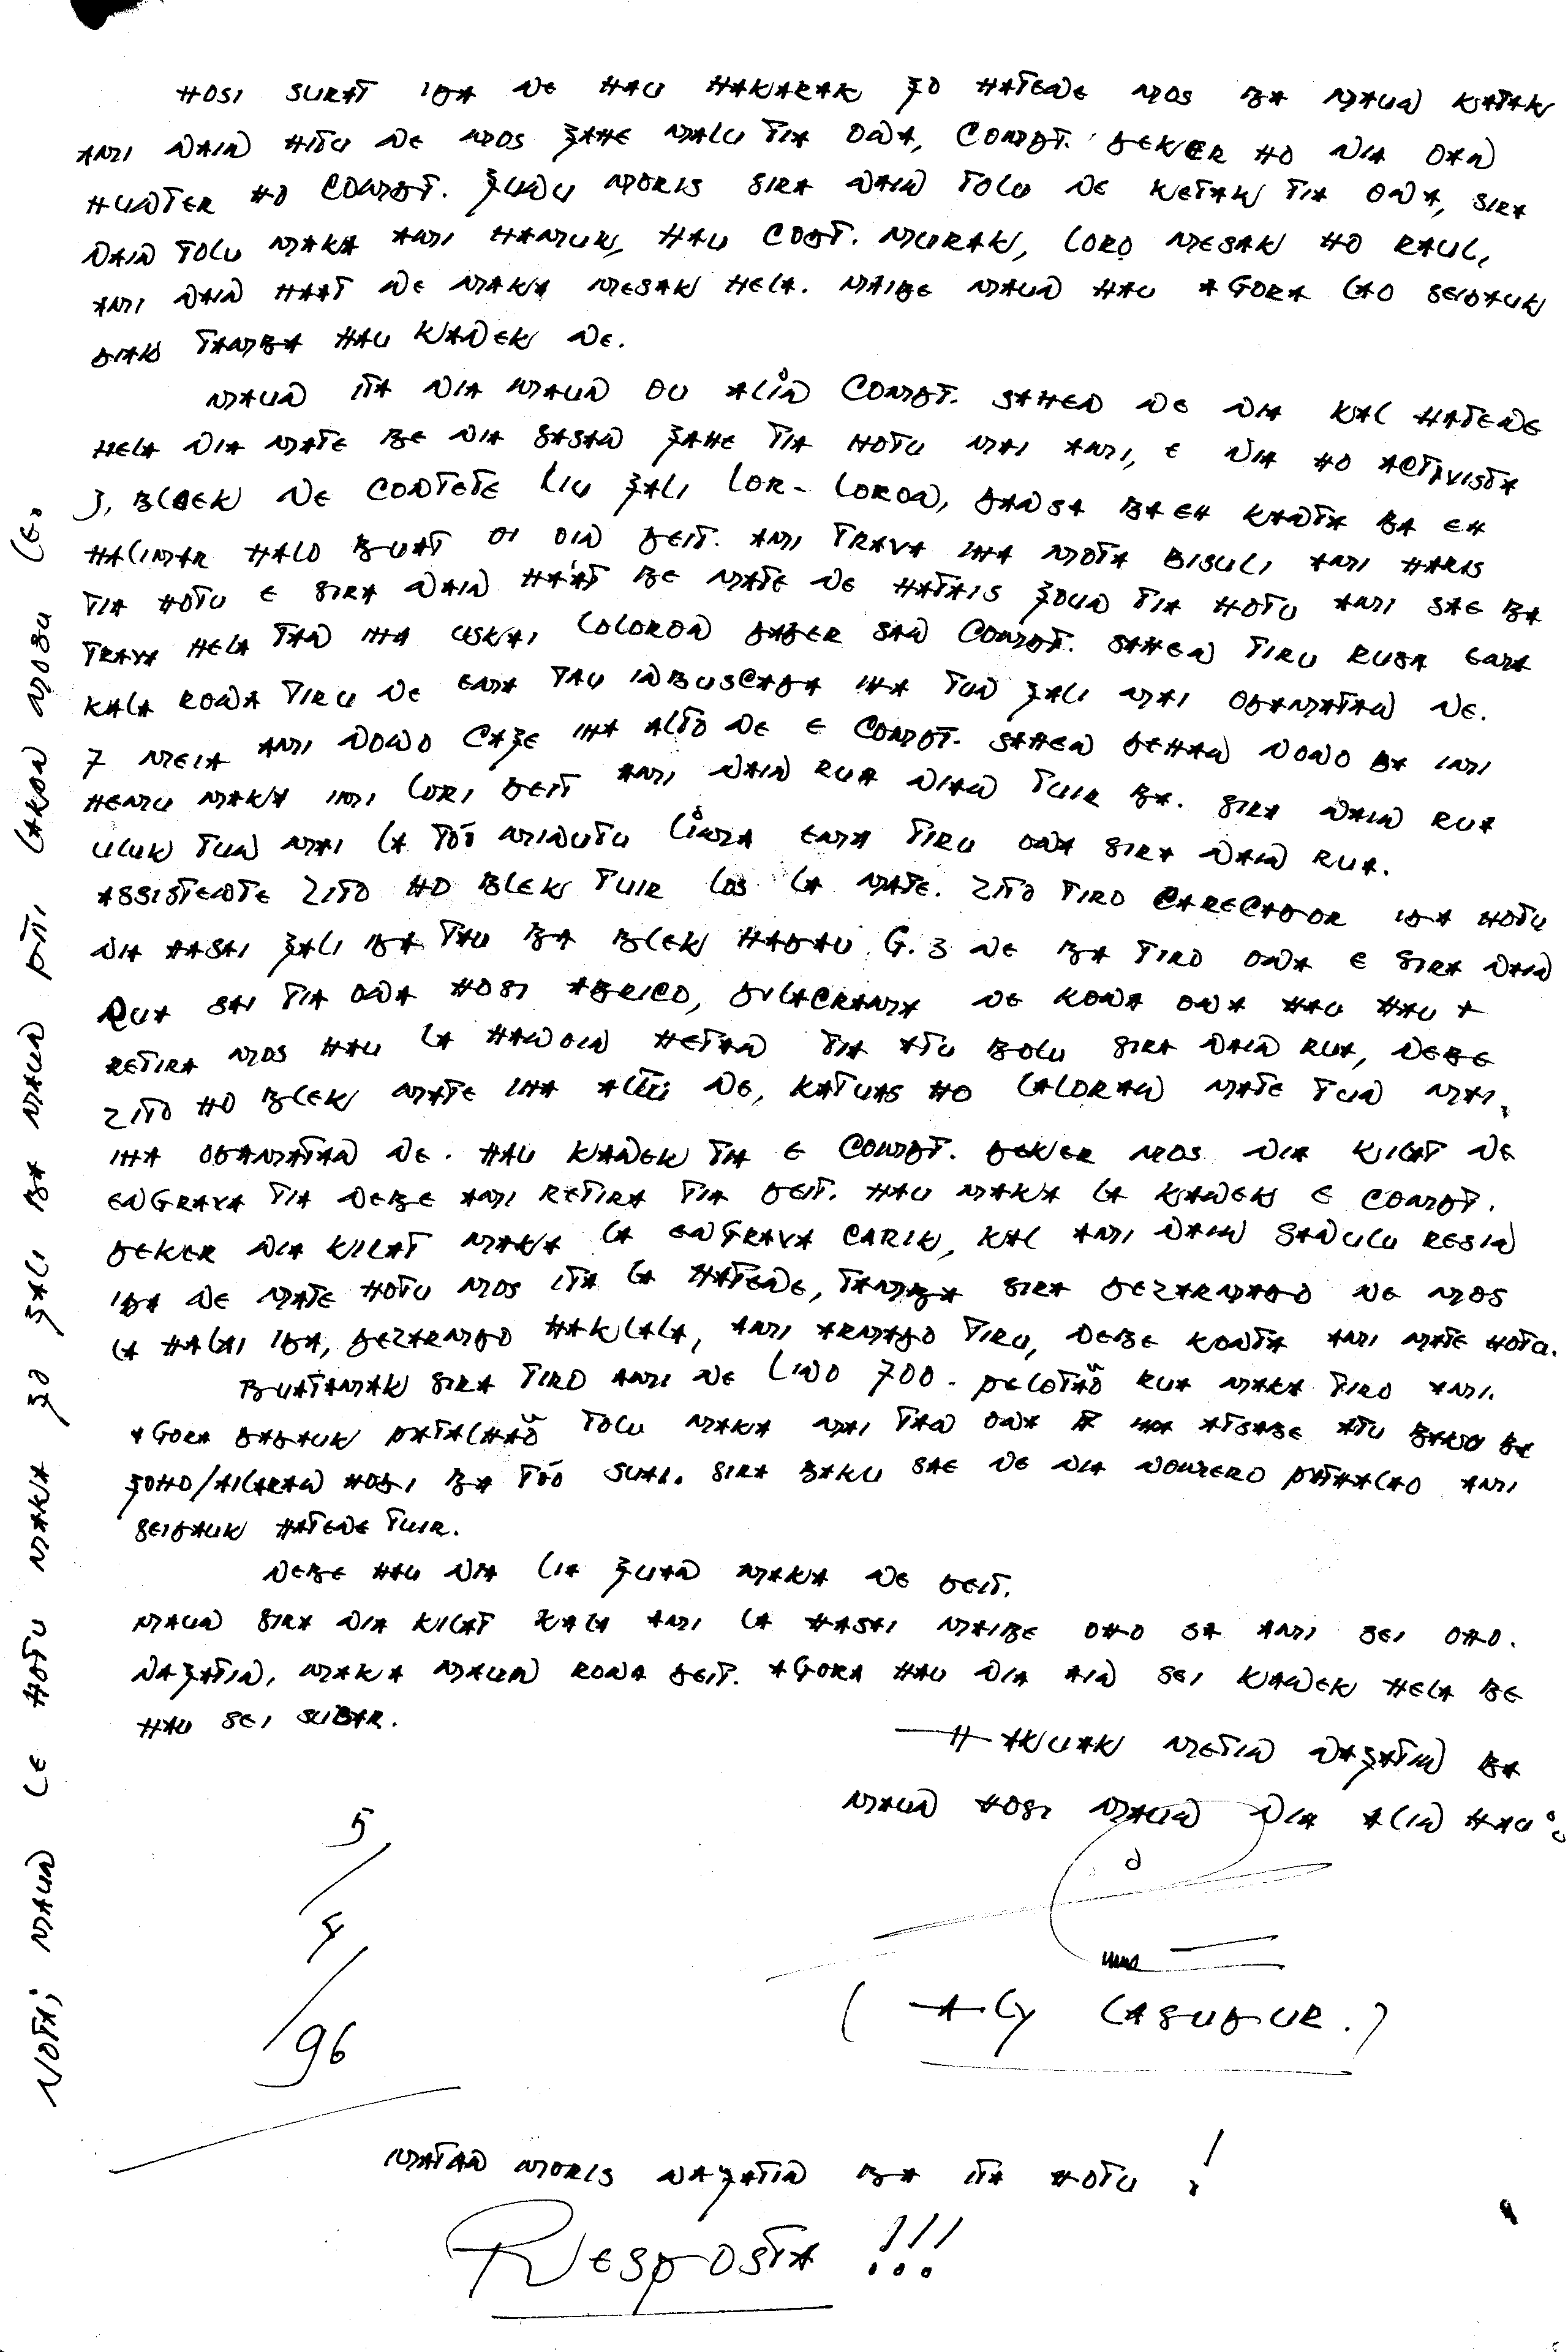 HOSI SURAT IDA NE HAU HAKARAK FO HATENE MOS BA MAUN KATAK
AMI NAIN HITU NE MOS FAHE MALU TIA ONA, COMDT. DEKER HO NIA OAN
HUNTER HO COMDT. FUNU MORIS SIRA NAIN TOLU NE KETAK TIA ONA, SIRA
NAIN TOLU MAKA AMI HAMUK, HAU CODT. MURAK, LORO MESAK HO RAUL,
AMI NAIN HAAT NE MAKA MESAK HELA. MAIBE MAUN HAU AGORA LAO SEIDAUK
DIAK TAMBA HAU KANEK NE.
MAUN ITA NIA MAUN OU ALIN COMDT. SAHEN NE NIA KAL HATENE
HELA NIA MATE BE NIA SASAN FAHE TIA HOTU MAI AMI, E NIA HO ACTIVISTA
J. BLEK NE CONTETE LIU FALI LOR-LORON, DANSA BA EH KANTA BA EH
HALIMAR HALO BUAT OI OIN DEIT. AMI TRAVA IHA MOTA BISULI AMI HARIS
TIA HOTU E SIRA NAIN HAAT BE MATE NE HATAIS FOUN TIA HOTU AMI SAE BA
TRAVA HELA TAN IHA USKAI LOLORON DADER SAN COMDT. SAHEN TIRU RUSA EMA
KALA RONA TIRU NE EMA TAU INBUSCADA IHA TUN FALI MAI ODAMATAN NE.
7 MEIA AMI NONO CAFE IHA ALTO NE E COMDT. SAHEN DEHAN NONO BA IMI
HEMU MAKA IMI LORI DEIT AMI NAIN RUA NIAN TUIR BA. SIRA NAIN RUA
ULUK TUN MAI LA TÓO MINUTU LIMA EMA TIRU ONA SIRA NAIN RUA.
ASSISTENTE ZITO HO BLEK TUIR LOS LA MATE. ZITO TIRO CARECADOR IDA HOTU
NIA HASAI FALI IDA TAU BA BLEK HADAU G.3 NE BA TIRO ONA E SIRA NAIN
RUA SAI TIA ONA HOSI ABRICO, DULACRAMA NE KONA ONA HAU HAU A
RETIRA MOS HAU LA HANOIN HETAN TIA ATU BOLU SIRA NAIN RUA, NEBE
ZITO HO BLEK MATE IHA NE, KATUAS HO LALORAN MATE TUN MAI.
IHA ODAMATAN NE. HAU KANEK TIA E COMDT. DEKER MOS NIA KILAT NE
ENGRAVA TIA NEBE AMI RETIRA TIA DEIT. HAU MAKA LA KANEK E COMDT.
DEKER NIA KILAT MAKA LA ENGRAVA CARIK, KAL AMI NAIN SANULU RESIN
IDA NE MATE HOTU MOS ITA LA HATENE, TAMBA SIRA DEZARMADO NE MOS
LA HALAI IDA, DEZARMADO HAKLALA, AMI ARMADO TIRU, NEBE KONTA AMI MATE HOTU.
BUATAMAK SIRA TIRO AMI NE LINO 700. PELOTAÕ RUA MAKA TIRO AMI.
AGORA DADAUK PATALHAÕ TOLU MAKA MAI TAN ONA IHA ATSABE ATU BAKU BA
FOHO/AILARAN HOSI BA TÓO SUAI. SIRA BAKU SAE NE NIA NOUMERO PATHALAO AMI
SEIDAUK HATENE TUIR.
NEBE HAU NIA LIA FUAN MAKA NE DEIT.
MAUN SIRA NIA KILAT KALA AMI LA HASAI MAIBE OHO SA AMI SEI OHO.
NAFATIN, MAKA MAUN RONA DEIT. AGORA HAU NIA AIN SEI KANEK HELA BE
HAU SEI SUBAR.
HAKUAK METIN NAFATIN BA
MAUN HOSI MAUN NIA ALIN HAU:
5/4/96
( ALY LASUDUR. )
MATAN MORIS NAFATIN BA ITA HOTU !
RESPOSTA !!!
NOTA; MAUN LE HOTU MAKA FO FALI BA MAUN PITI LAKON MOSU LE.